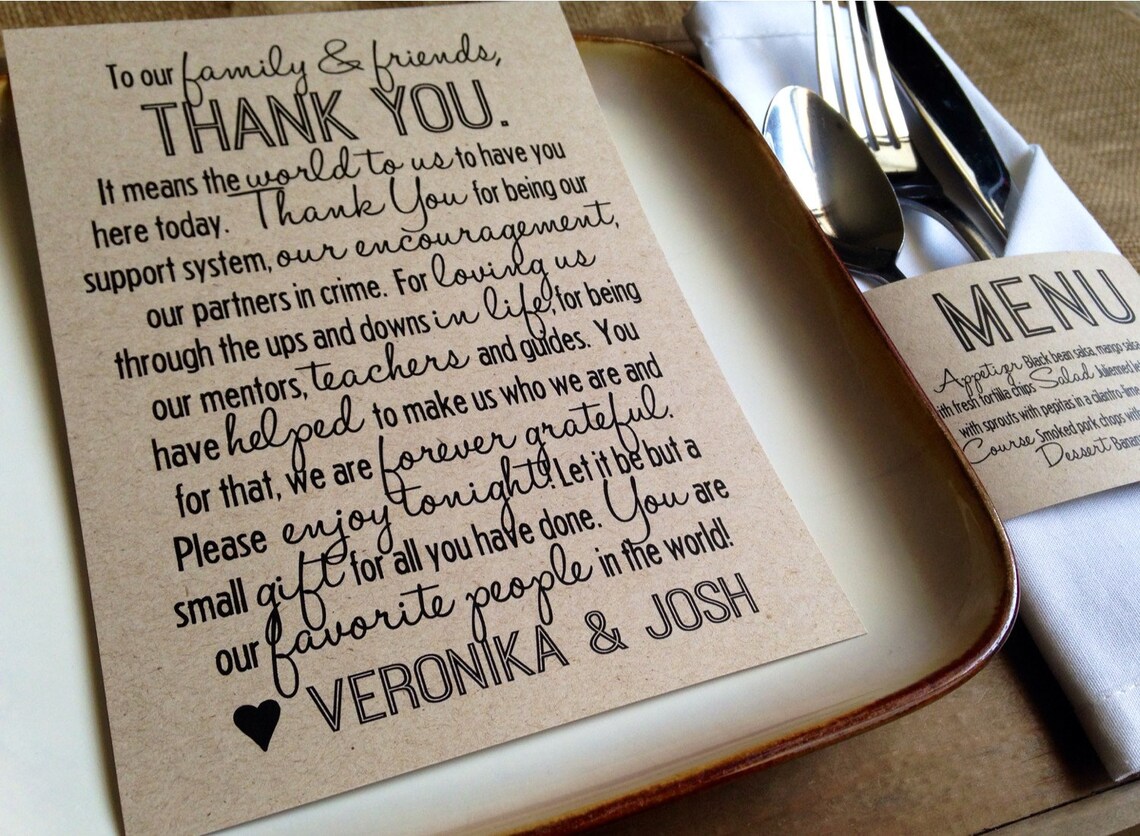 To our family & friends,
THANK YOU.
It means the world to us to have you
here today. Thank You for being our
support system, our encouragement,
our partners in crime. For loving us
through the ups and downs in life, for being
our mentors, teachers and guides. You
have helped to make us who we are and
for that, we are forever grateful.
Please enjoy tonight! Let it be but a
small gift for all you have done. You are
our favorite people in the world!
VERONIKA & JOSH
MENU
Appetizer Black bean salsa, mango salsa
with fresh tortilla chips Salad Julienned
with sprouts with pepitas in a cilantro-lime
Course Smoked pork chops with
Dessert